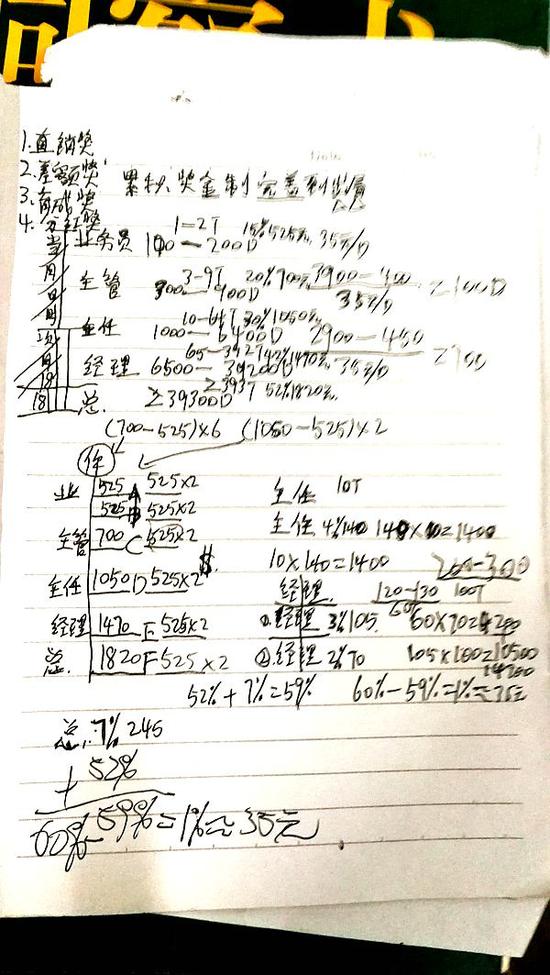 1.直销奖
2.差额奖
3.育成奖
4.分红奖
累积奖金制
业务员 1—2T 15% 525元 35元/D
100—200D
主管 3-9T 20% 700元 3900-400
300—900D 35元/D ≥100D
主任 10-64T 30% 1050元 2900-450
1000—6400D 35元/D
经理 65-392T 42% 1470元
6500—39200D
总 ≥393T 52% 1820元
≥39300D
(700-525)×6 (1050-525)×2
你
业 525 A 525×2
525 B 525×2
主管 700 C 525×2
主任 1050 D 525×2
经理 1470 E 525×2
总 1820 F 525×2
主任 10T
主任 4% 140 140×10=1400
10×140=1400 200-300
经理 120-130 100T
60T
①经理 3% 105 60×70=4200
②经理 2% 70 105×100=10500
14700
52%+7%=59% 60%-59%=1%=35元
总 7% 245
+ 52%
60%-59%=1%=35元